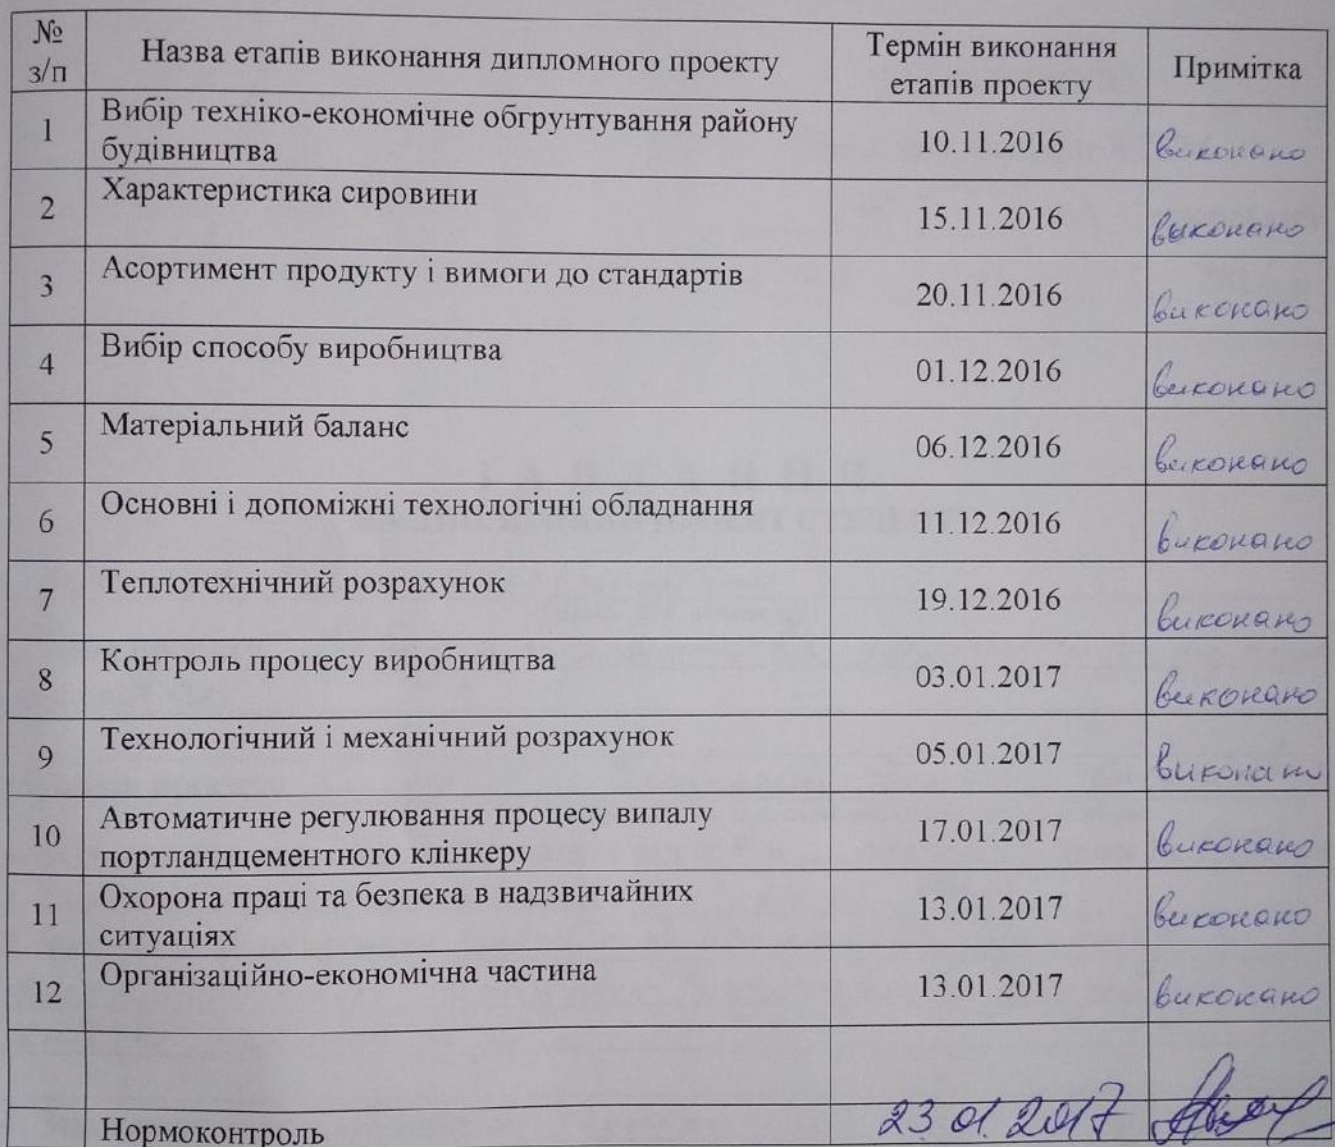 № з/п Назва етапів виконання дипломного проекту Термін виконання етапів проекту Примітка
1 Вибір техніко-економічне обгрунтування району будівництва 10.11.2016 виконано
2 Характеристика сировини 15.11.2016 выконано
3 Асортимент продукту і вимоги до стандартів 20.11.2016 виконано
4 Вибір способу виробництва 01.12.2016 виконано
5 Матеріальний баланс 06.12.2016 виконано
6 Основні і допоміжні технологічні обладнання 11.12.2016 виконано
7 Теплотехнічний розрахунок 19.12.2016 виконано
8 Контроль процесу виробництва 03.01.2017 виконано
9 Технологічний і механічний розрахунок 05.01.2017 виконано
10 Автоматичне регулювання процесу випалу портландцементного клінкеру 17.01.2017 виконано
11 Охорона праці та безпека в надзвичайних ситуаціях 13.01.2017 виконано
12 Організаційно-економічна частина 13.01.2017 виконано
Нормоконтроль 23.01.2017